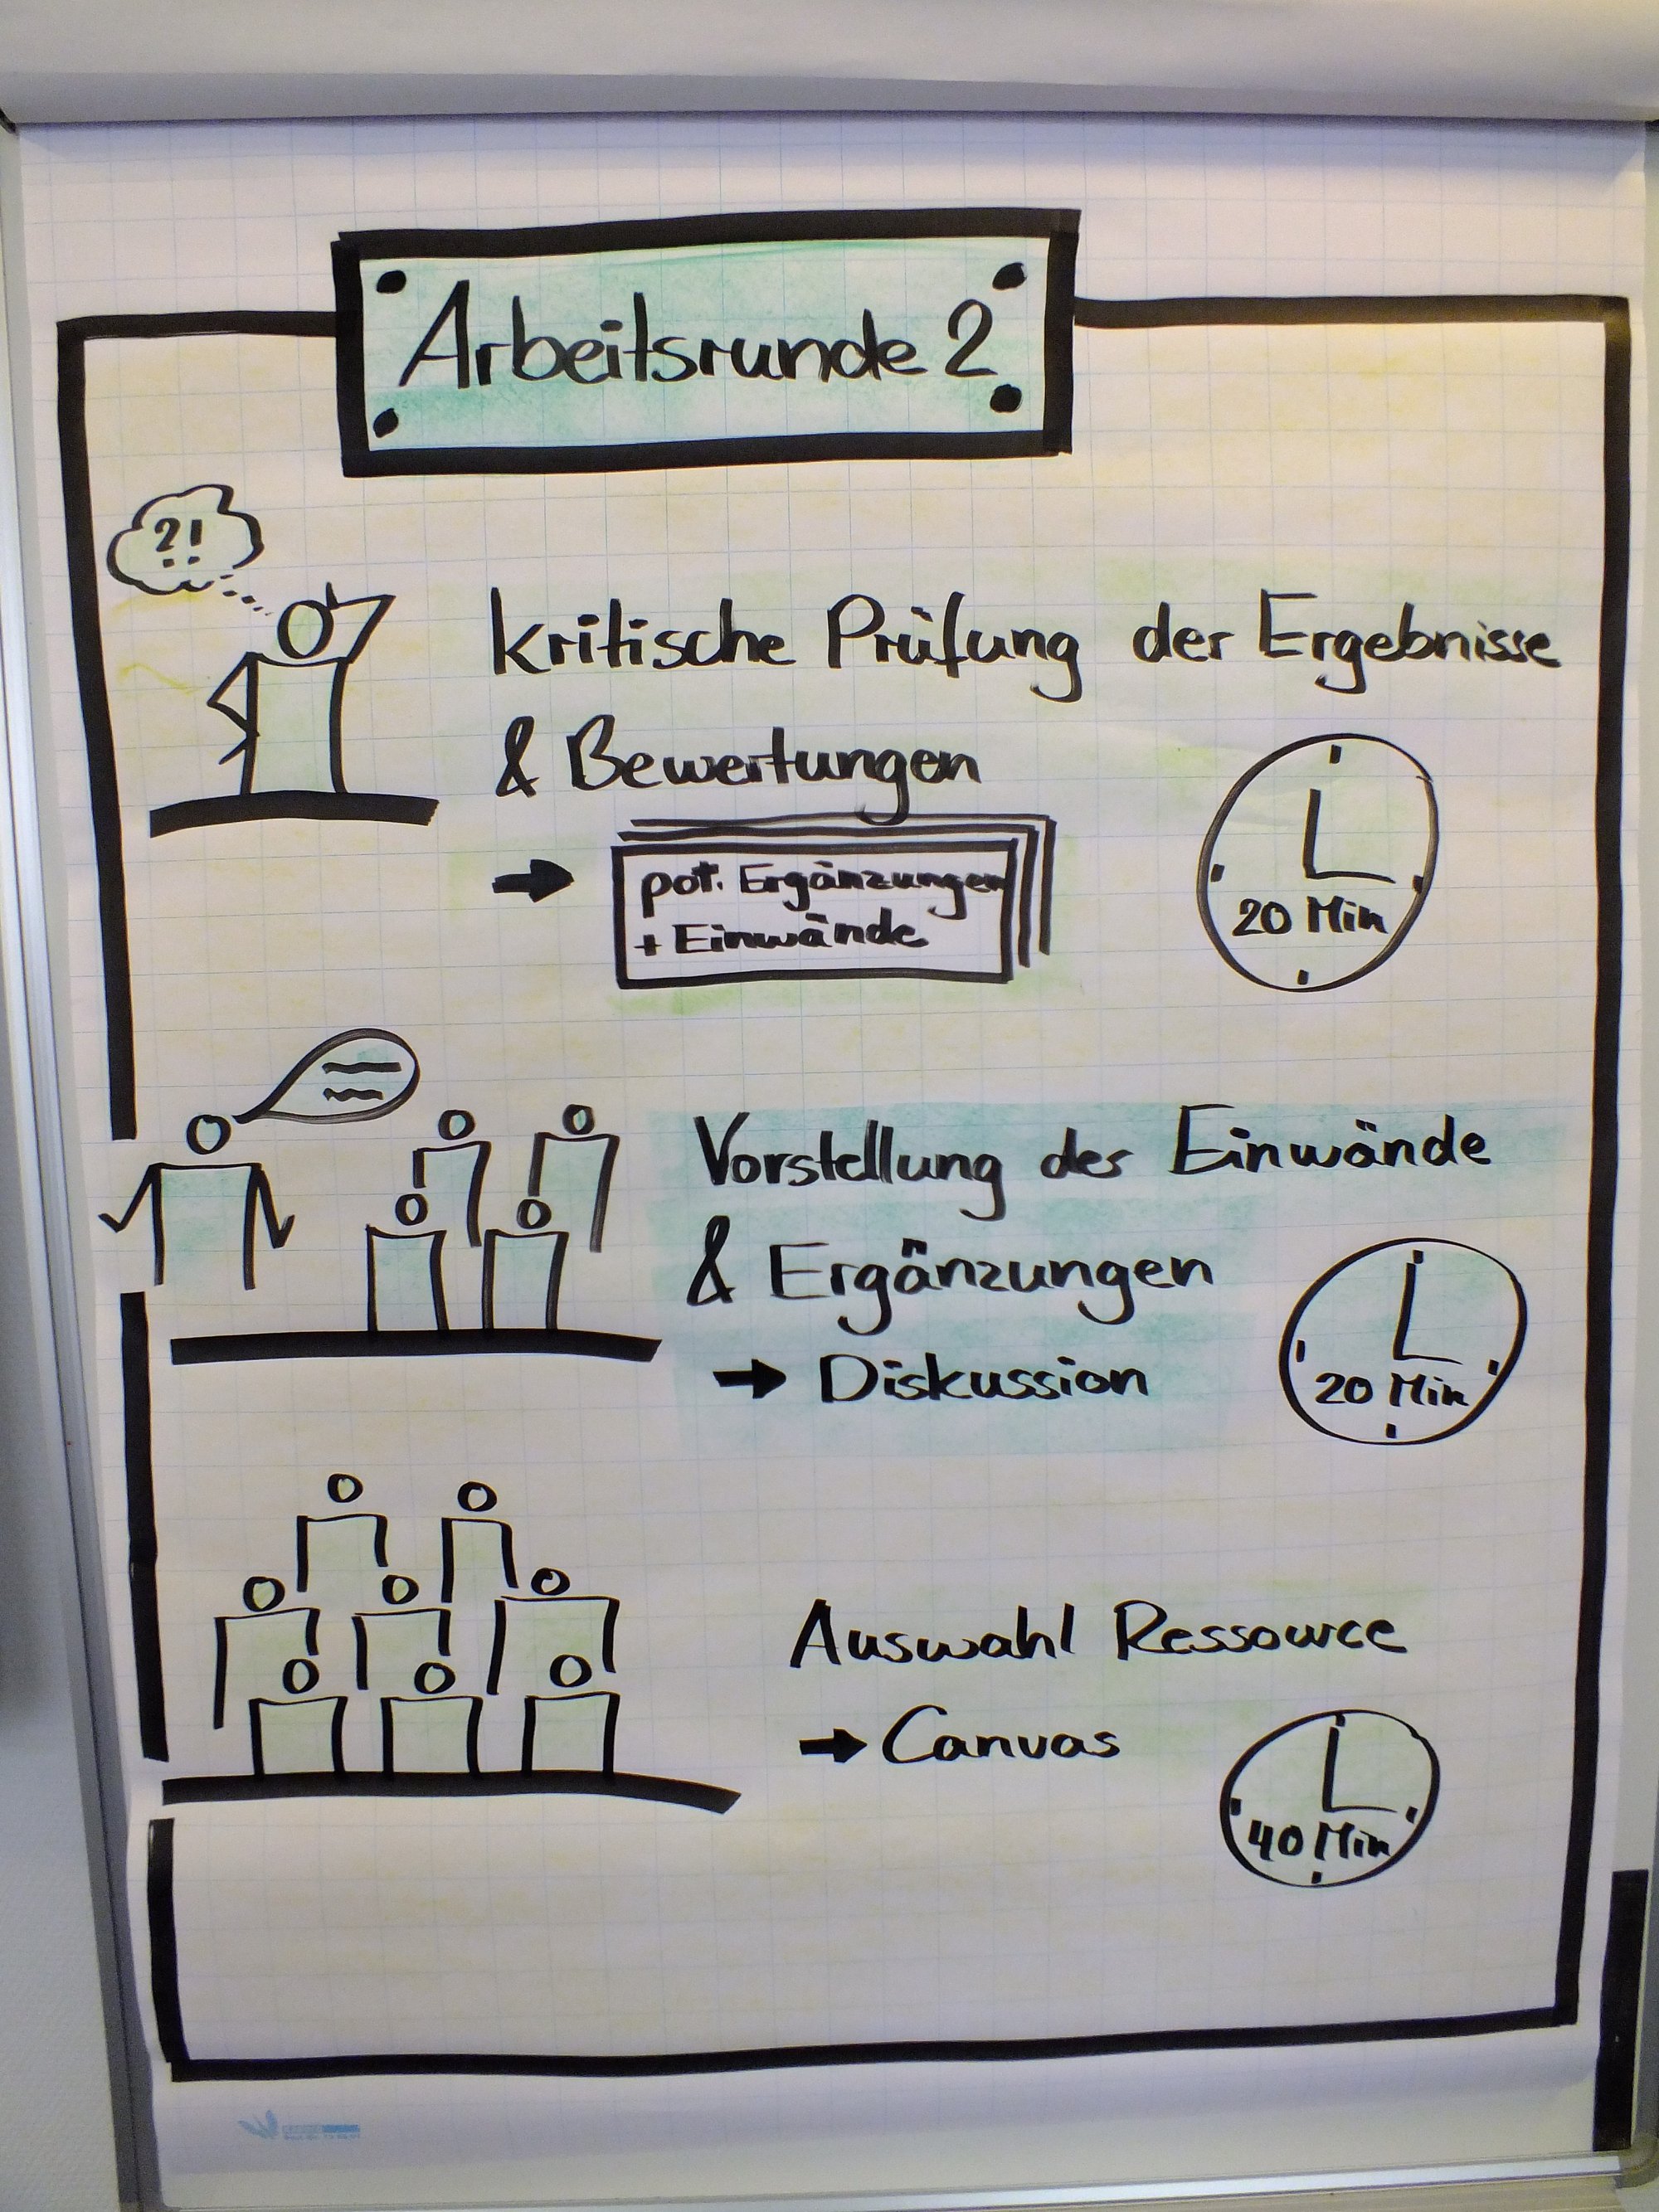 Arbeitsrunde 2
?!
kritische Prüfung der Ergebnisse
& Bewertungen
→ pot. Ergänzungen
+ Einwände
20 Min
Vorstellung der Einwände
& Ergänzungen
→ Diskussion
20 Min
Auswahl Ressource
→ Canvas
40 Min